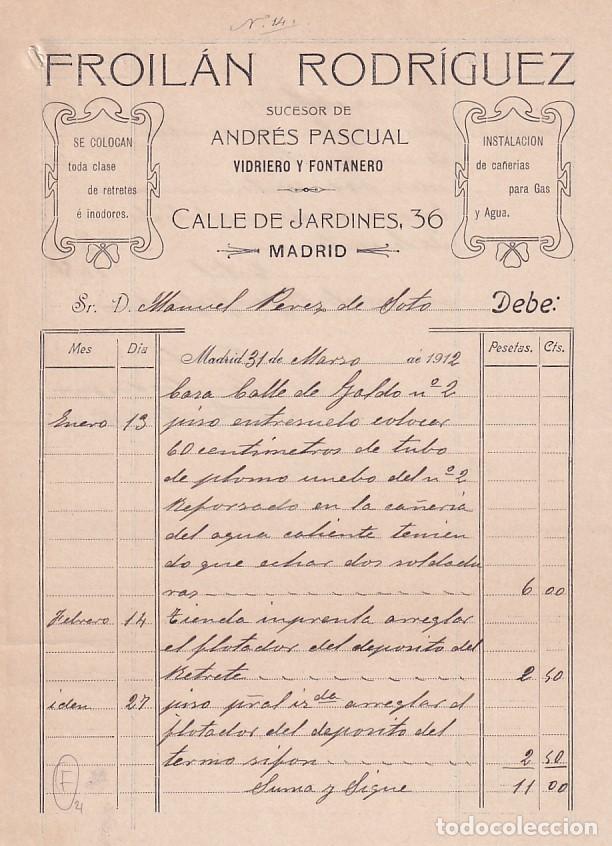 N.º 14.
FROILÁN RODRÍGUEZ
SUCESOR DE
ANDRÉS PASCUAL
VIDRIERO Y FONTANERO
CALLE DE JARDINES, 36
MADRID
SE COLOCAN
toda clase
de retretes
é inodoros.
INSTALACION
de cañerias
para Gas
y Agua.
Sr. D. Manuel Perez de Soto Debe:
Mes Dia Pesetas. Cts.
Madrid 31 de Marzo de 1912
Casa Calle de Galdo nº 2
Enero 13 piso entresuelo colocar
60 centimetros de tubo
de plomo nuebo del nº 2
Reforsado en la cañeria
del agua caliente tenien
do que echar dos soldadu
ras 6 00
Febrero 14 tienda imprenta arreglar
el flotador del deposito del
Retrete 2 50
iden 27 piso pñral izda arreglar el
flotador del deposito del
termo sifon 2 50
Suma y Sigue 11 00
F
21
todocoleccion.net